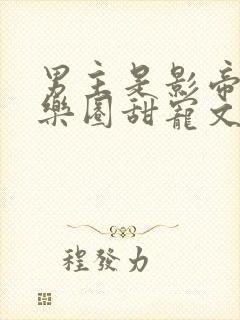 男主是影帝
樂圈甜寵文
程發力